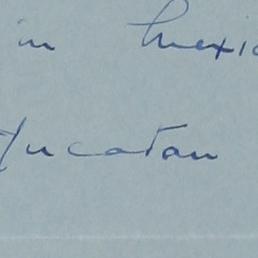 in Mexic
Yucatan